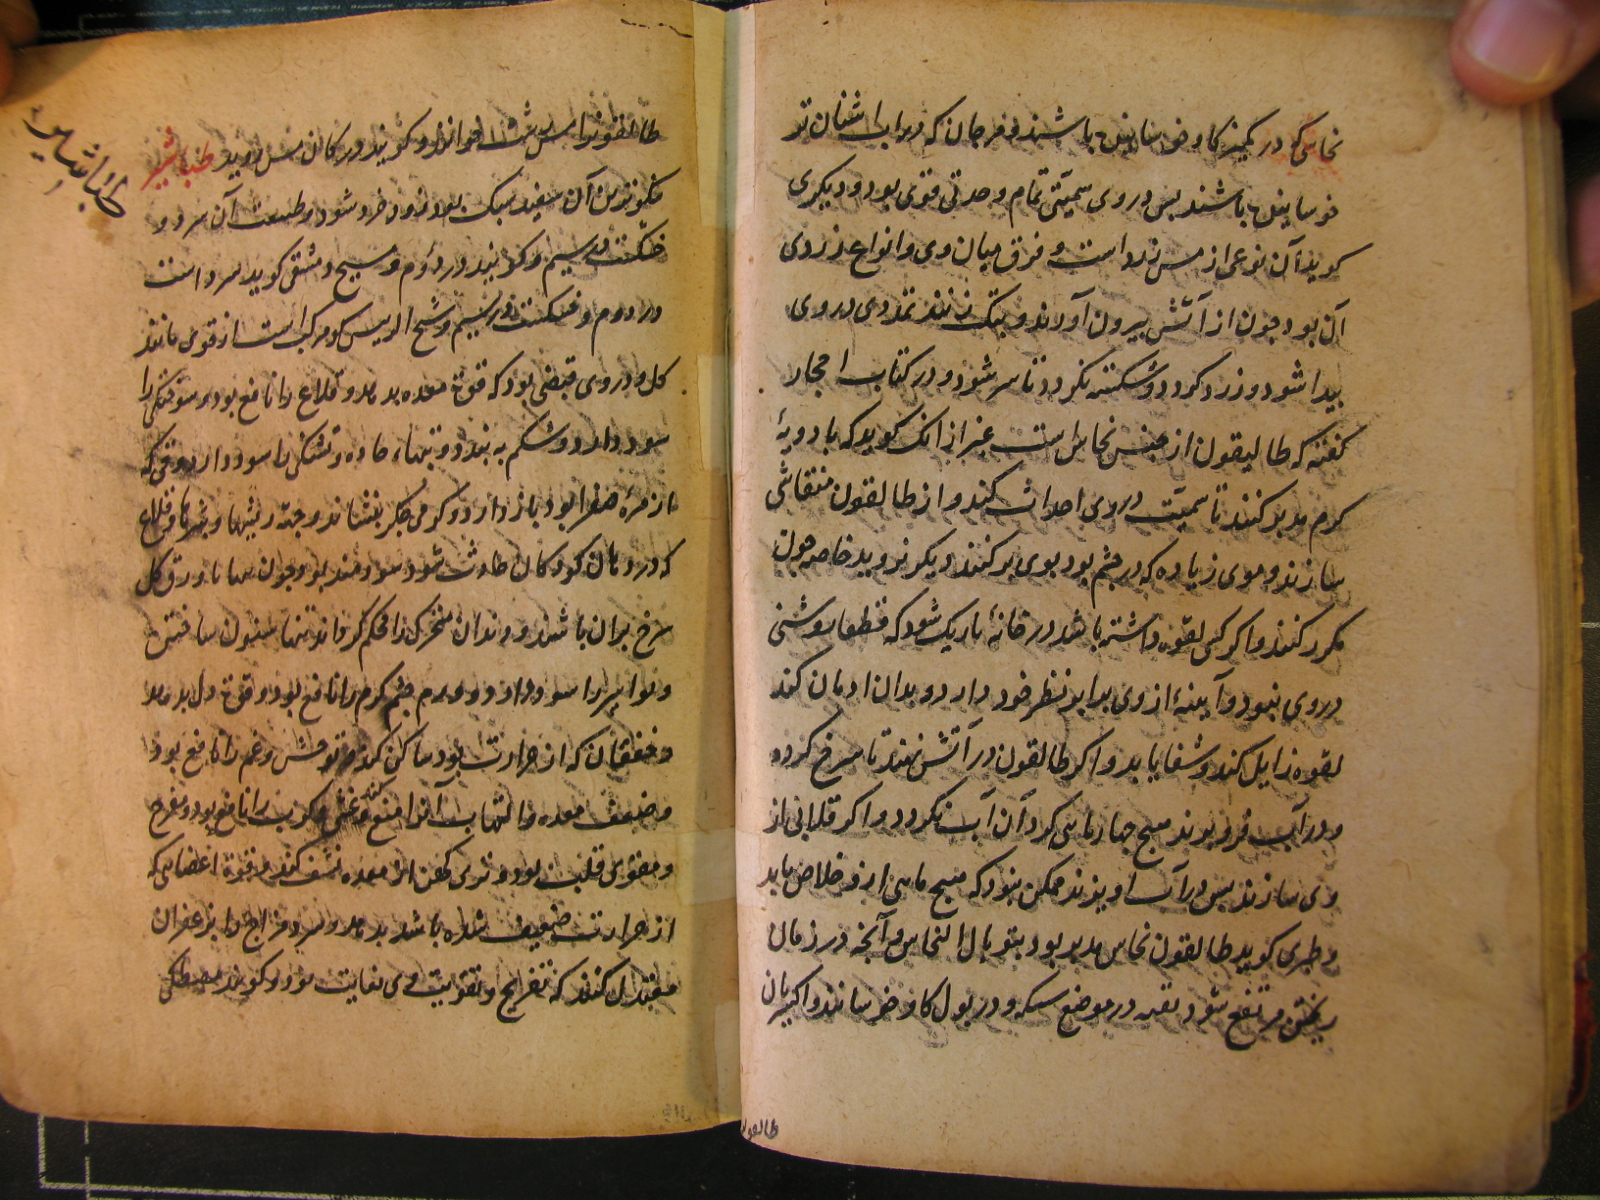 نحاسی که در کمیز کاو خوسانیده باشند و مرجان که در آب اشنان تر
خوسانیده باشند پس در وی سمیتی تمام وحدتی قوی بود و دیکری
کوید آن نوعی از مس زرد است و فرق میان وی و انواع زردی
آن بود چون از آتش بیرون آورند و پتک زنند تمددی در وی
پیدا شود و زرد کردد و شکسته نکردد تا سرشود و در کتاب احجار
کفته که طالیقون از جنس نحاس است غیر از انک کوید که بادویهٔ
کرم مدبر کنند تا سمیت در وی احداث کند و از طالقون منقاشی
سازند و موی زیاده که در چشم بود بوی برکنند دیکر نروید خاصه چون
مکرر کنند و اکر کسی لقوه داشته باشد در خانهٔ تاریک شود که قطعا روشنی
در وی نبود و آیینهٔ از وی برابر نظر خود دارد و بدان ادمان کند
لقوه زایل کند و شفا یابد و اکر طالقون در آتش نهند تا سرخ کردد
و در آب فرو برند هیچ چهارپای کرد آن آب نکردد و اکر قلابی از
وی سازند پس در آب اویزند ممکن نبود که هیچ ماهی ازو خلاص یابد
و طبری کوید طالقون نحاس مدبر بود بتوبال النحاس و آنچه در زمان
ریختن مرتفع شود در موضع سکه و در بول کاو خوسانند و اکسیریان
طالقون
طباشیر
طالقون را مس خوانند و کویند در کان مس روید طباشیر
نیکوترین آن سفید سبک بود زود خرد شود و طبیعت آن سرد و
خشکست در سیم و کویند در دوم و مسیح دمشقی کوید سرد است
در دوم و خشکست در سیم و شیخ الرییس کو مرکب است از قوی مانند
کل و در وی قبضی بود که قوة معده بدهد و قلاع را نافع بود و سوختکی را
سود دارد و شکم به بندد و تبهاء حاده و تشنکی را سود دارد و قی که
از مرهٔ صفرا بود باز دارد و کرمی جکر بنشاند و جهة ریشها و قلاع
که در دهان کودکان حادث شود سودمند بود چون تنها یا ورق کل
سرخ بران باشند و دندان متحرک را محکم کرداند تنها سنون ساختن
و بواسیر را سود دارد و ورم چشم کرم را نافع بود و قوة دل بدهد
و خفقان که از حرارت بود ساکن کند و توحش و غم را نافع بود
و ضعف معده و التهاب آنرا منع کند و غشی و کرب را نافع بود و مفرح
و مقوی قلب بود و تری کهن از معده نشف کند و قوة اعضایی که
از حرارت ضعیف شده باشد بدهد و سرد مزاج را بزعفران
معتدل کنند که تفریح و تقویت وی بغایت بود و کویند مصطکی